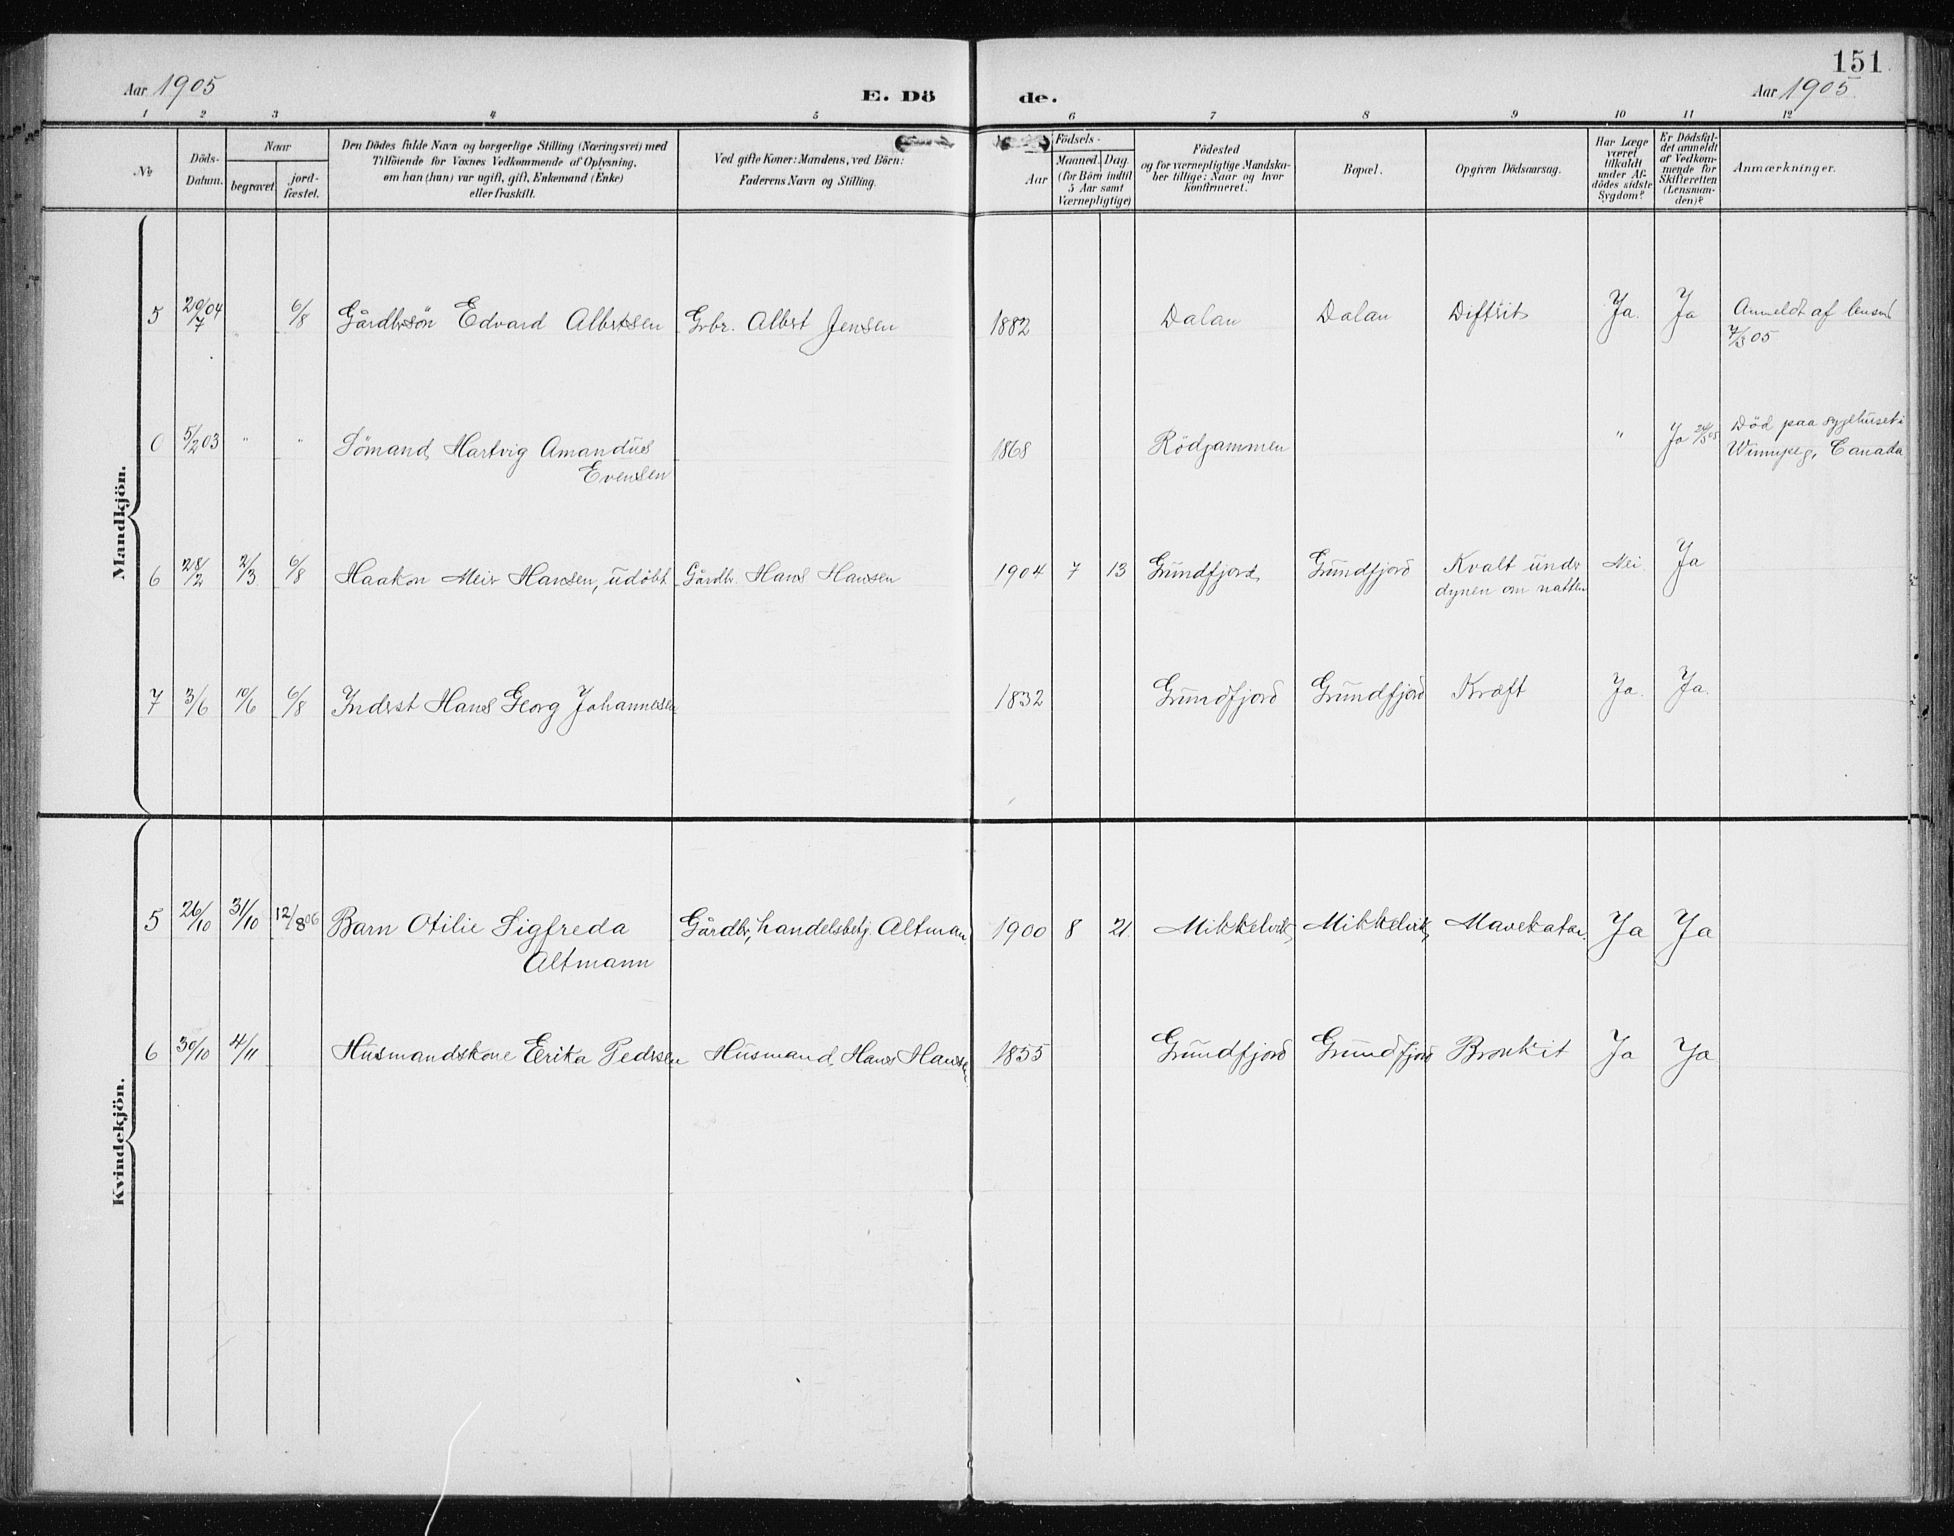 151
Aar 1905
E. Dö
de.
Aar 1905.
1 2 3 4 5 6 7 8 9 10 11 12
No
Döds-
Datum.
Naar
begravet.
jord-
fæstet.
Den Dödes fulde Navn og borgerlige Stilling (Næringsvei) med
Tilföiende for Voxnes Vedkommende af Oplysning,
om han (hun) var ugift, gift, Enkemand (Enke)
eller fraskilt.
Ved gifte Koner: Mandens, ved Börn:
Faderens Navn og Stilling.
Födsels-
Aar
Maaned. Dag.
(for Börn indtil
5 Aar samt
Værnepligtige)
Födested
og for værnepligtige Mandska-
ber tillige: Naar og hvor
konfirmeret.
Bopæl.
Opgiven Dödsaarsag.
Har Læge
været
tilkaldt
under Af-
dödes sidste
Sygdom?
Er Dödsfal-
det anmeldt
af Vedkom-
mende for
Skifteretten
(Lensman-
den)?
Anmærkninger.
Mandkjön.
5 20/7 04 6/8 Gårdbrsön Edvard Albertsen Grbr. Albert Jensen 1882 Dalan Dalan Difterit Ja. Ja Anmeldt af lensm
7/3 05
0 5/2 03 " " Sömand Hartvig Amandus 1868 Rödgammen " Ja 24/5 05 Död paa sygehuset i
Evensen Winnipeg, Canada
6 28/2 2/3 6/8 Haakon Meier Hansen, udöbt Gårdbr. Hans Hansen 1904 7 13 Grundfjord Grundfjord Kvalt under Nei Ja
dynen om natten
7 3/6 10/6 6/8 Inderst Hans Georg Johannesen 1832 Grundfjord Grundfjord Kræft Ja. Ja.
Kvindekjön.
5 26/10 31/10 12/8 06 Barn Otilie Sigfreda Gårdbr, handelsbetj. Altman 1900 8 21 Mikkelvik Mikkelvik Mavekatar. Ja Ja
Altmann
6 30/10 4/11 Husmandskone Erika Pedersen Husmand Hans Hansen 1855 Grundfjord Grundfjord Bronkit Ja Ja